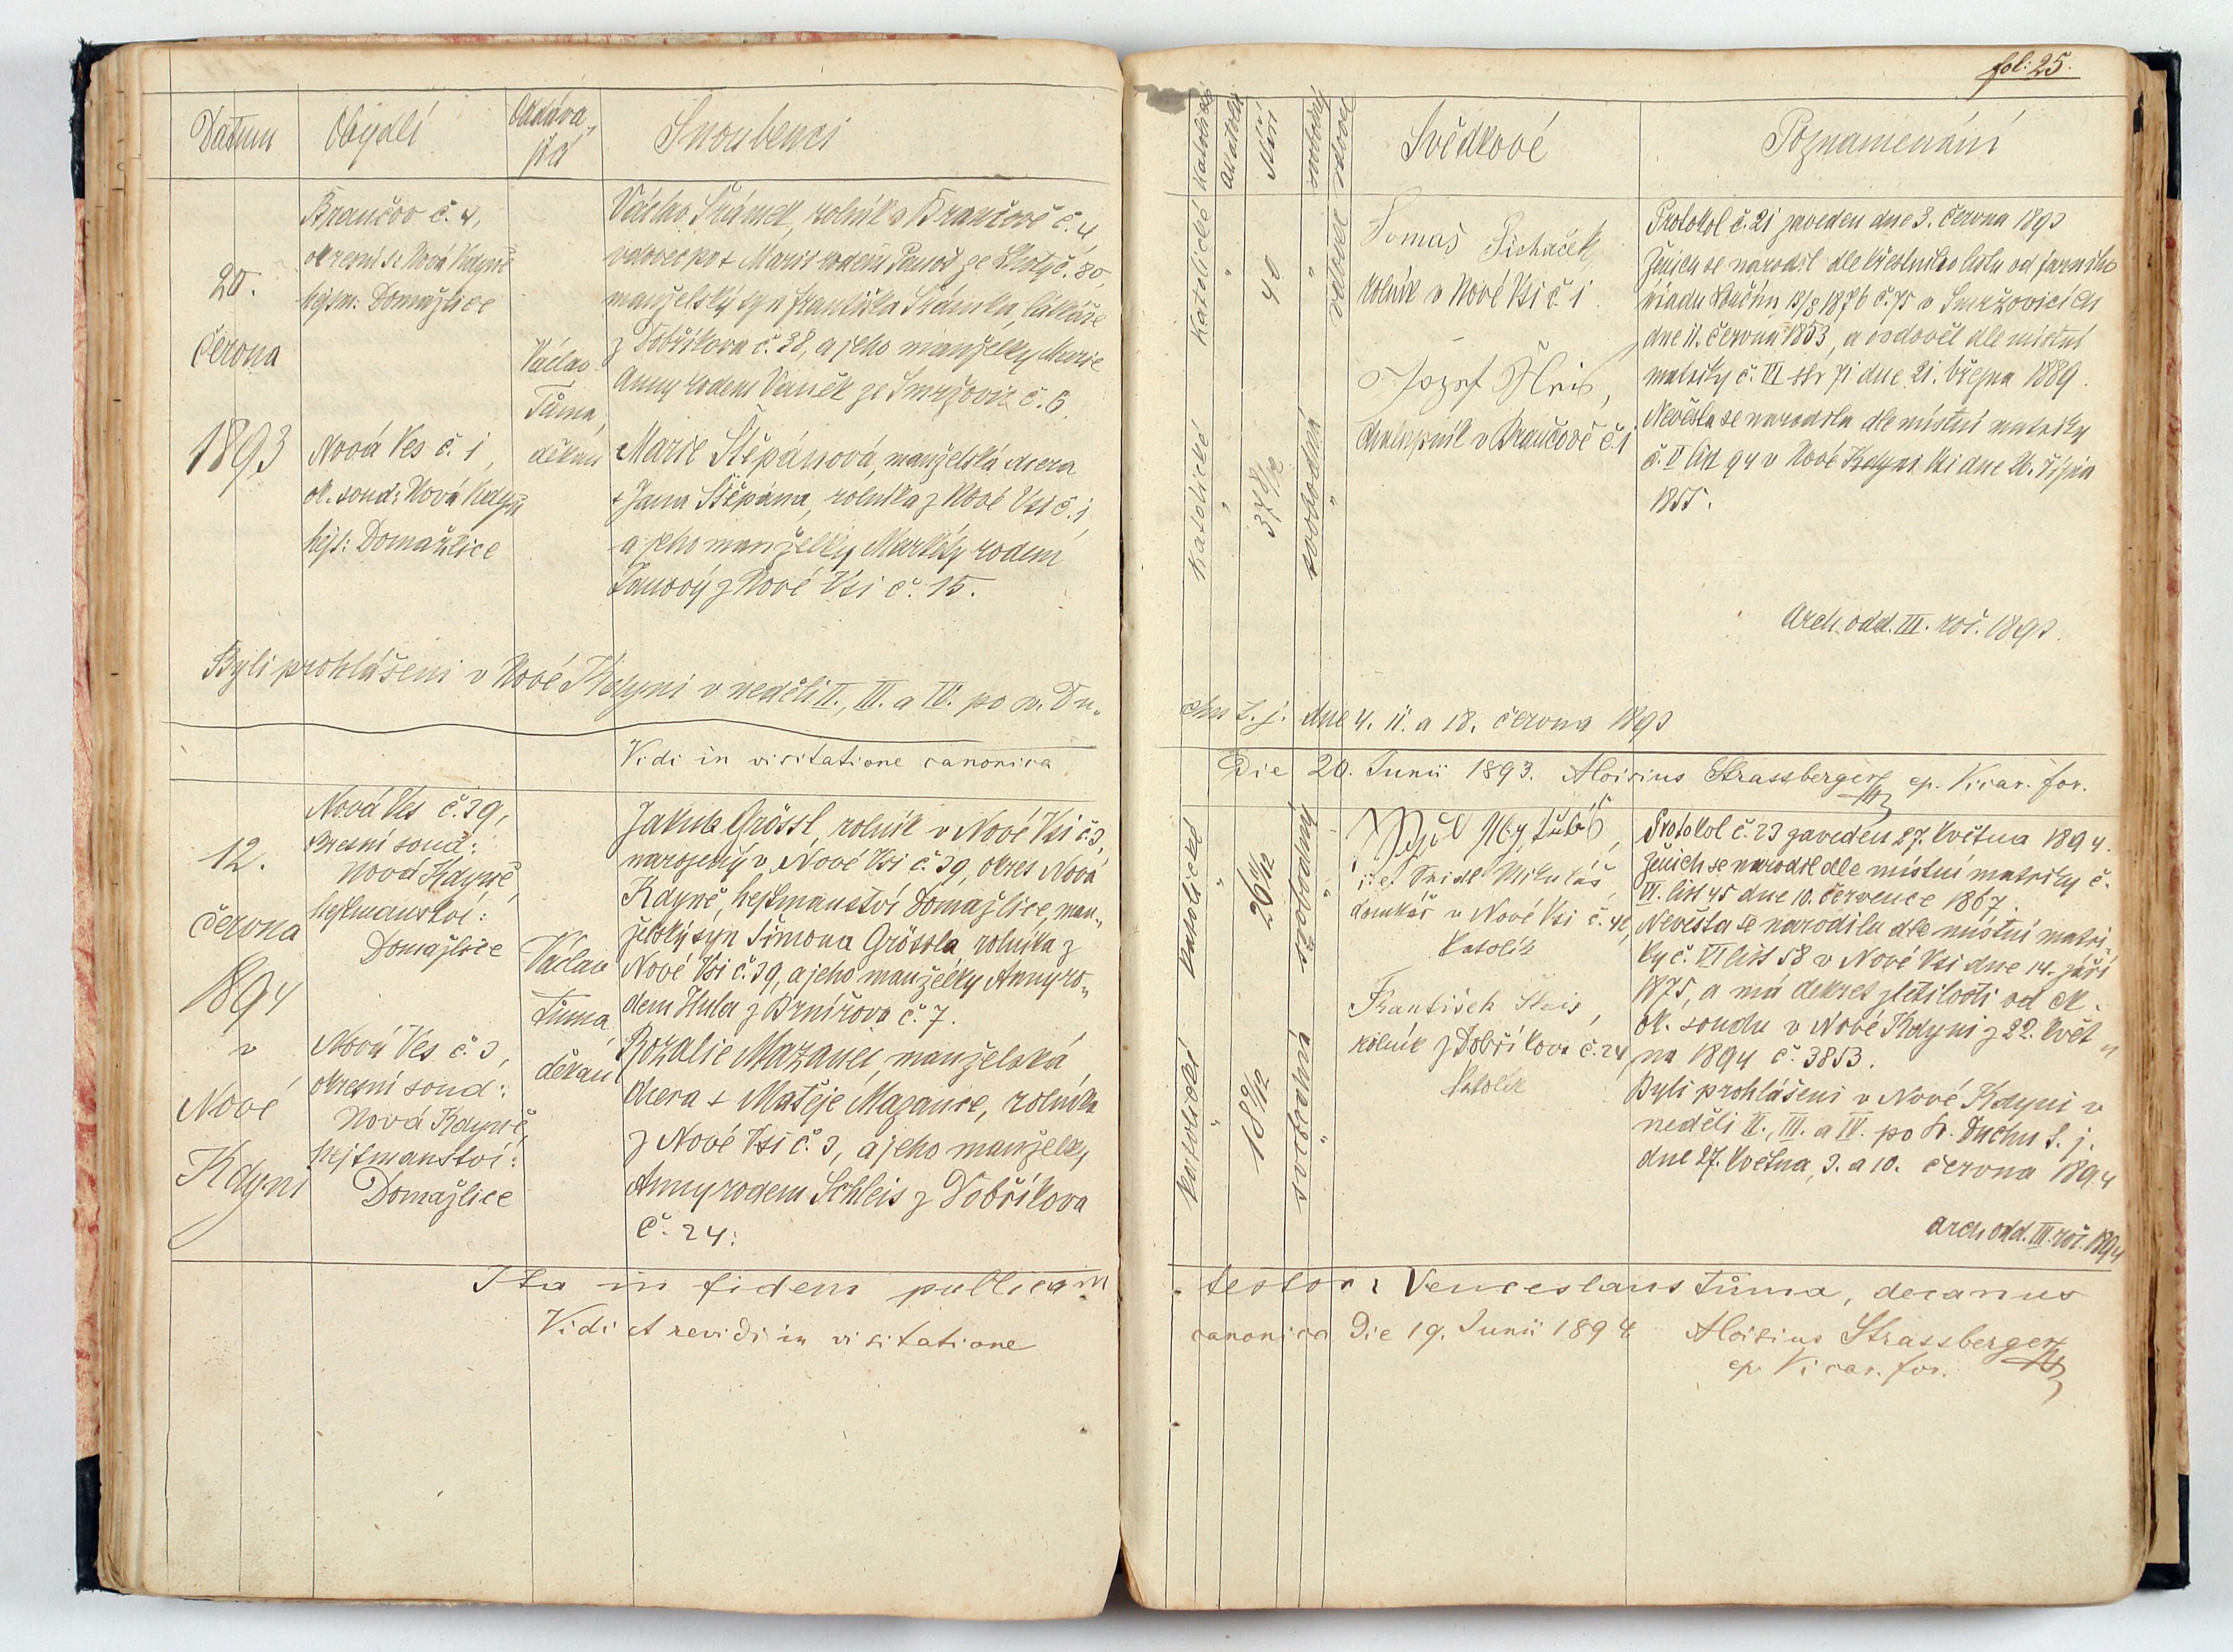 fol: 25.
Datum
Obydlí
Oddáva-
jící
Snoubenci
katolické
Akatolíci
Stáří
svobodný
vdovec
Svědkové
Poznamenání
20.
června
1893
Brančov č. 4,
okresní s: Nová Kdyně
hejtm: Domažlice
Nová Ves č. 1,
ok. soud: Nová Kdyně
hejt: Domažlice
Václav
Tůma,
děkan
Václav Šrámek, rolník v Brančově č. 4
vdovec po + Marii rodem
manželský syn Františka Šrámka,
z Dobříkova č. 38, a jeho manželky Marie
Anny rodem Vaněk ze Smržovic č. 6.
Marie Štěpánová, manželská dcera
+ Jana Štěpána, rolníka z Nové Vsi č. 1,
a jeho manželky Markéty rodem
z Nové Vsi č. 15.
Katolické
"
40
"
vdovec
Katolické
"
37 8/12
svobodná
"
Tomáš
rolník v Nové Vsi č. 1.
Jozef
chalupník v Brančově č. 1
Protokol č. 21 zaveden dne 3. června 1893
Ženich se narodil dle křestního listu od farního
úřadu 1876 č. 75 v Smržovicích
dne 11. června 1853, a ovdověl dle místní
matriky č. III str 71 dne 21. března 1889.
Nevěsta se narodila dle místní matriky
č. V list 94 v Nové Kdyni Vsi dne 26. října
1855.
Arch. odd. III. roč. 1893.
Byli prohlášeni v Nové Kdyni v neděli II., III. a IV. po sv. Du-
chu t. j. dne 4. 11. a 18. června 1893
Vidi in visitatione canonica
Die 20. Junii 1893. Aloisius Strassberger ep. Vicar. for.
12.
června
1894
v
Nové
Kdyni
Nová Ves č. 39,
okresní soud:
Nová Kdyně,
hejtmanství:
Domažlice
Nová Ves č. 3,
okresní soud:
Nová Kdyně,
hejtmanství:
Domažlice
Václav
Tůma
děkan
Jakub Grössl, rolník v Nové Vsi č. 3,
narozený v Nové Vsi č. 39, okres Nová
Kdyně, hejtmanství Domažlice, man-
želský syn Šimona Grössla rolníka z
Nové Vsi č. 39, a jeho manželky Anny ro-
dem Hula z Brnířova č. 7.
Rozalie Mazanec, manželská
dcera + Matěje Mazance, rolníka
z Nové Vsi č. 3, a jeho manželky
Anny rodem Schleis z Dobříkova
č. 24.
katolické
"
26 11/12
svobodný
"
katolické
"
18 9/12
svobodná
"
i. e. Mikuláš
domkář v Nové Vsi č. 42,
katolík
František Šleis,
rolník z Dobříkova č. 24,
katolík
Protokol č. 23 zaveden 27. května 1894.
Ženich se narodil dle místní matriky č.
VI. list 45 dne 10. července 1867.
Nevěsta se narodila dle místní matri-
ky č. VI list 58 v Nové Vsi dne 14. září
1875, a má dekret zletilosti od c.k.
ok. soudu v Nové Kdyni z 22. květ-
na 1894 č. 3853.
Byli prohlášeni v Nové Kdyni v
neděli II., III. a IV. po sv. Duchu t. j.
dne 27. května, 3. a 10. června 1894
arch odd. III. roč. 1894
Ita in fidem publicam testor: Venceslaus Tůma, decanus
Vidi et revidi in visitatione canonica Die 19. Junii 1894 Aloisius Strassberger
ep. Vicar. for.